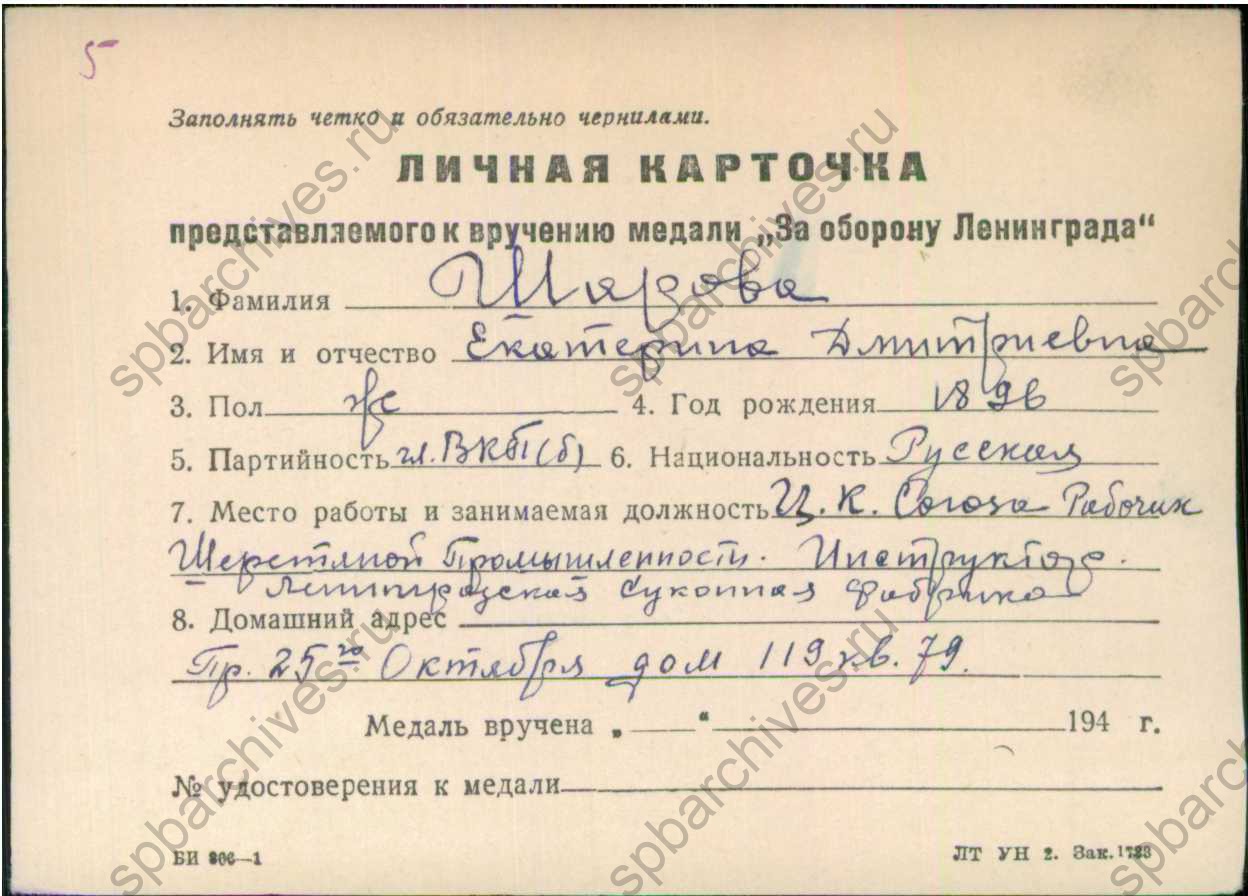 5
Заполнять четко и обязательно чернилами.
ЛИЧНАЯ КАРТОЧКА
представляемого к вручению медали „За оборону Ленинграда“
1. Фамилия Шарова
2. Имя и отчество Екатерина Дмитриевна
3. Пол ж 4. Год рождения 1896
5. Партийность чл. ВКП(б) 6. Национальность Русская
7. Место работы и занимаемая должность Ц. К. Союза Рабочих
Шерстяной Промышленности. Инструктор.
Ленинградская Суконная Фабрика
8. Домашний адрес
Пр. 25го Октября дом 119 кв. 79.
Медаль вручена „ “ 194 г.
№ удостоверения к медали
БИ 806—1 ЛТ УН 2. Зак. 1723
spbarchives.ru